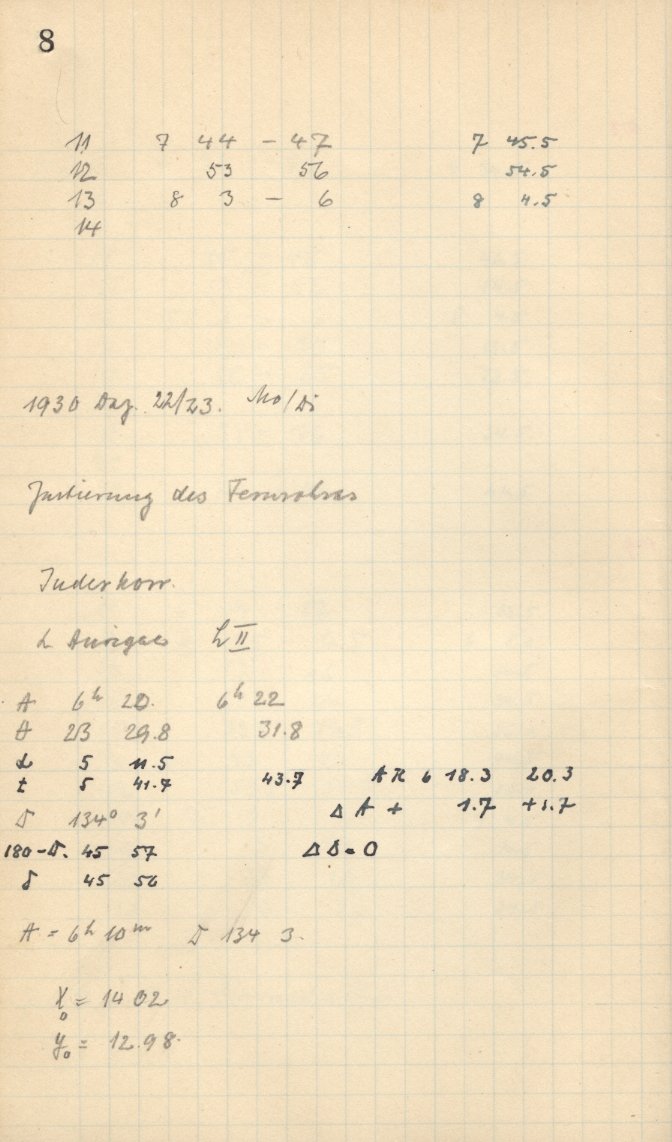 8
11 7 44 – 47 7 45.5
12 53 56 54.5
13 8 3 – 6 8 4.5
14
1930 Dez. 22/23. Mo/Di
Justierung des Fernrohres
Indexkorr.
α Aurigae h II
A 6h 20. 6h 22
θ 23 29.8 31.8
α 5 11.5
t 5 41.7 43.7 AR 6 18.3 20.3
D 134° 3' Δ A + 1.7 +1.7
180–D. 45 57 Δδ = 0
δ 45 56
A = 6h 10m D 134 3.
X₀ = 14 02
y₀ = 12.98